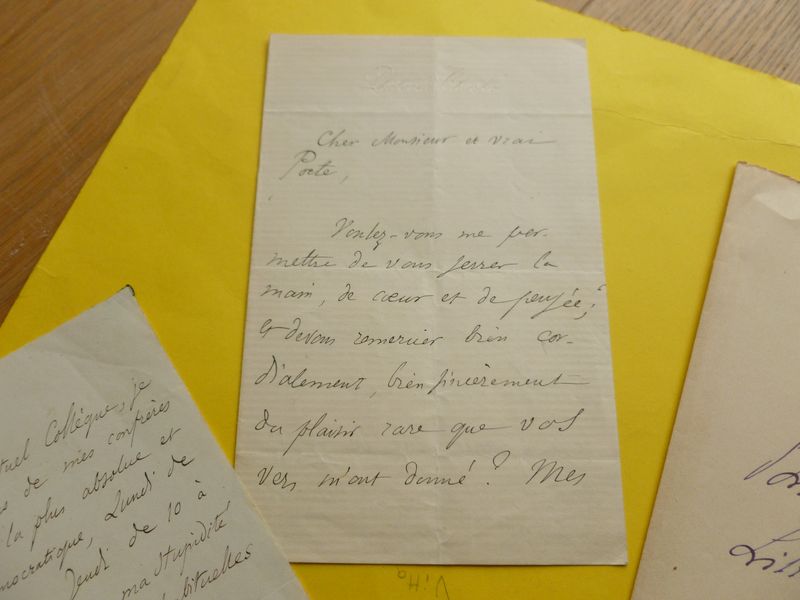 Cher Monsieur et vrai
Poete,
Voulez-vous me per-
mettre de vous serrer la
main, de cœur et de pensée,?
et de vous remercier bien cor-
dialement, bien sincèrement
du plaisir rare que vos
vers m'ont donné? Mes
tuel Collègue, je
de mes confrères
la plus absolue et
mocratique, Lundi de
Jeudi de 10 à
ma stupidité
bituelles
Vitta